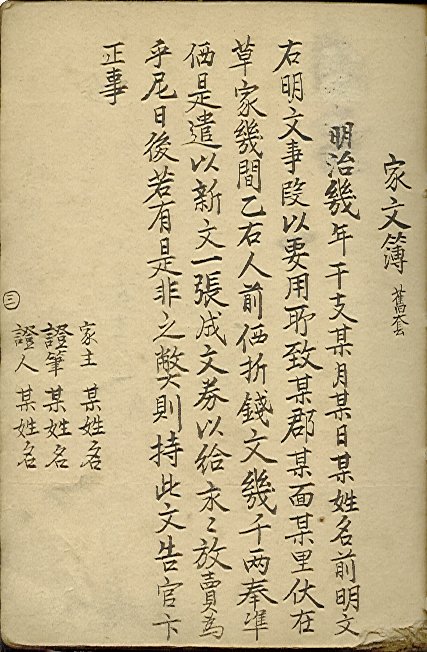 家文簿 舊套
明治幾年干支某月某日某姓名前明文
右明文事段以要用所致某郡某面某里伏在
草家幾間乙右人前価折錢文幾千両奉準
価是遣以新文一張成文券以給永〻放賣為
乎尼日後若有是非之弊則持此文告官卞
正事
家主 某姓名
證筆 某姓名
證人 某姓名
三